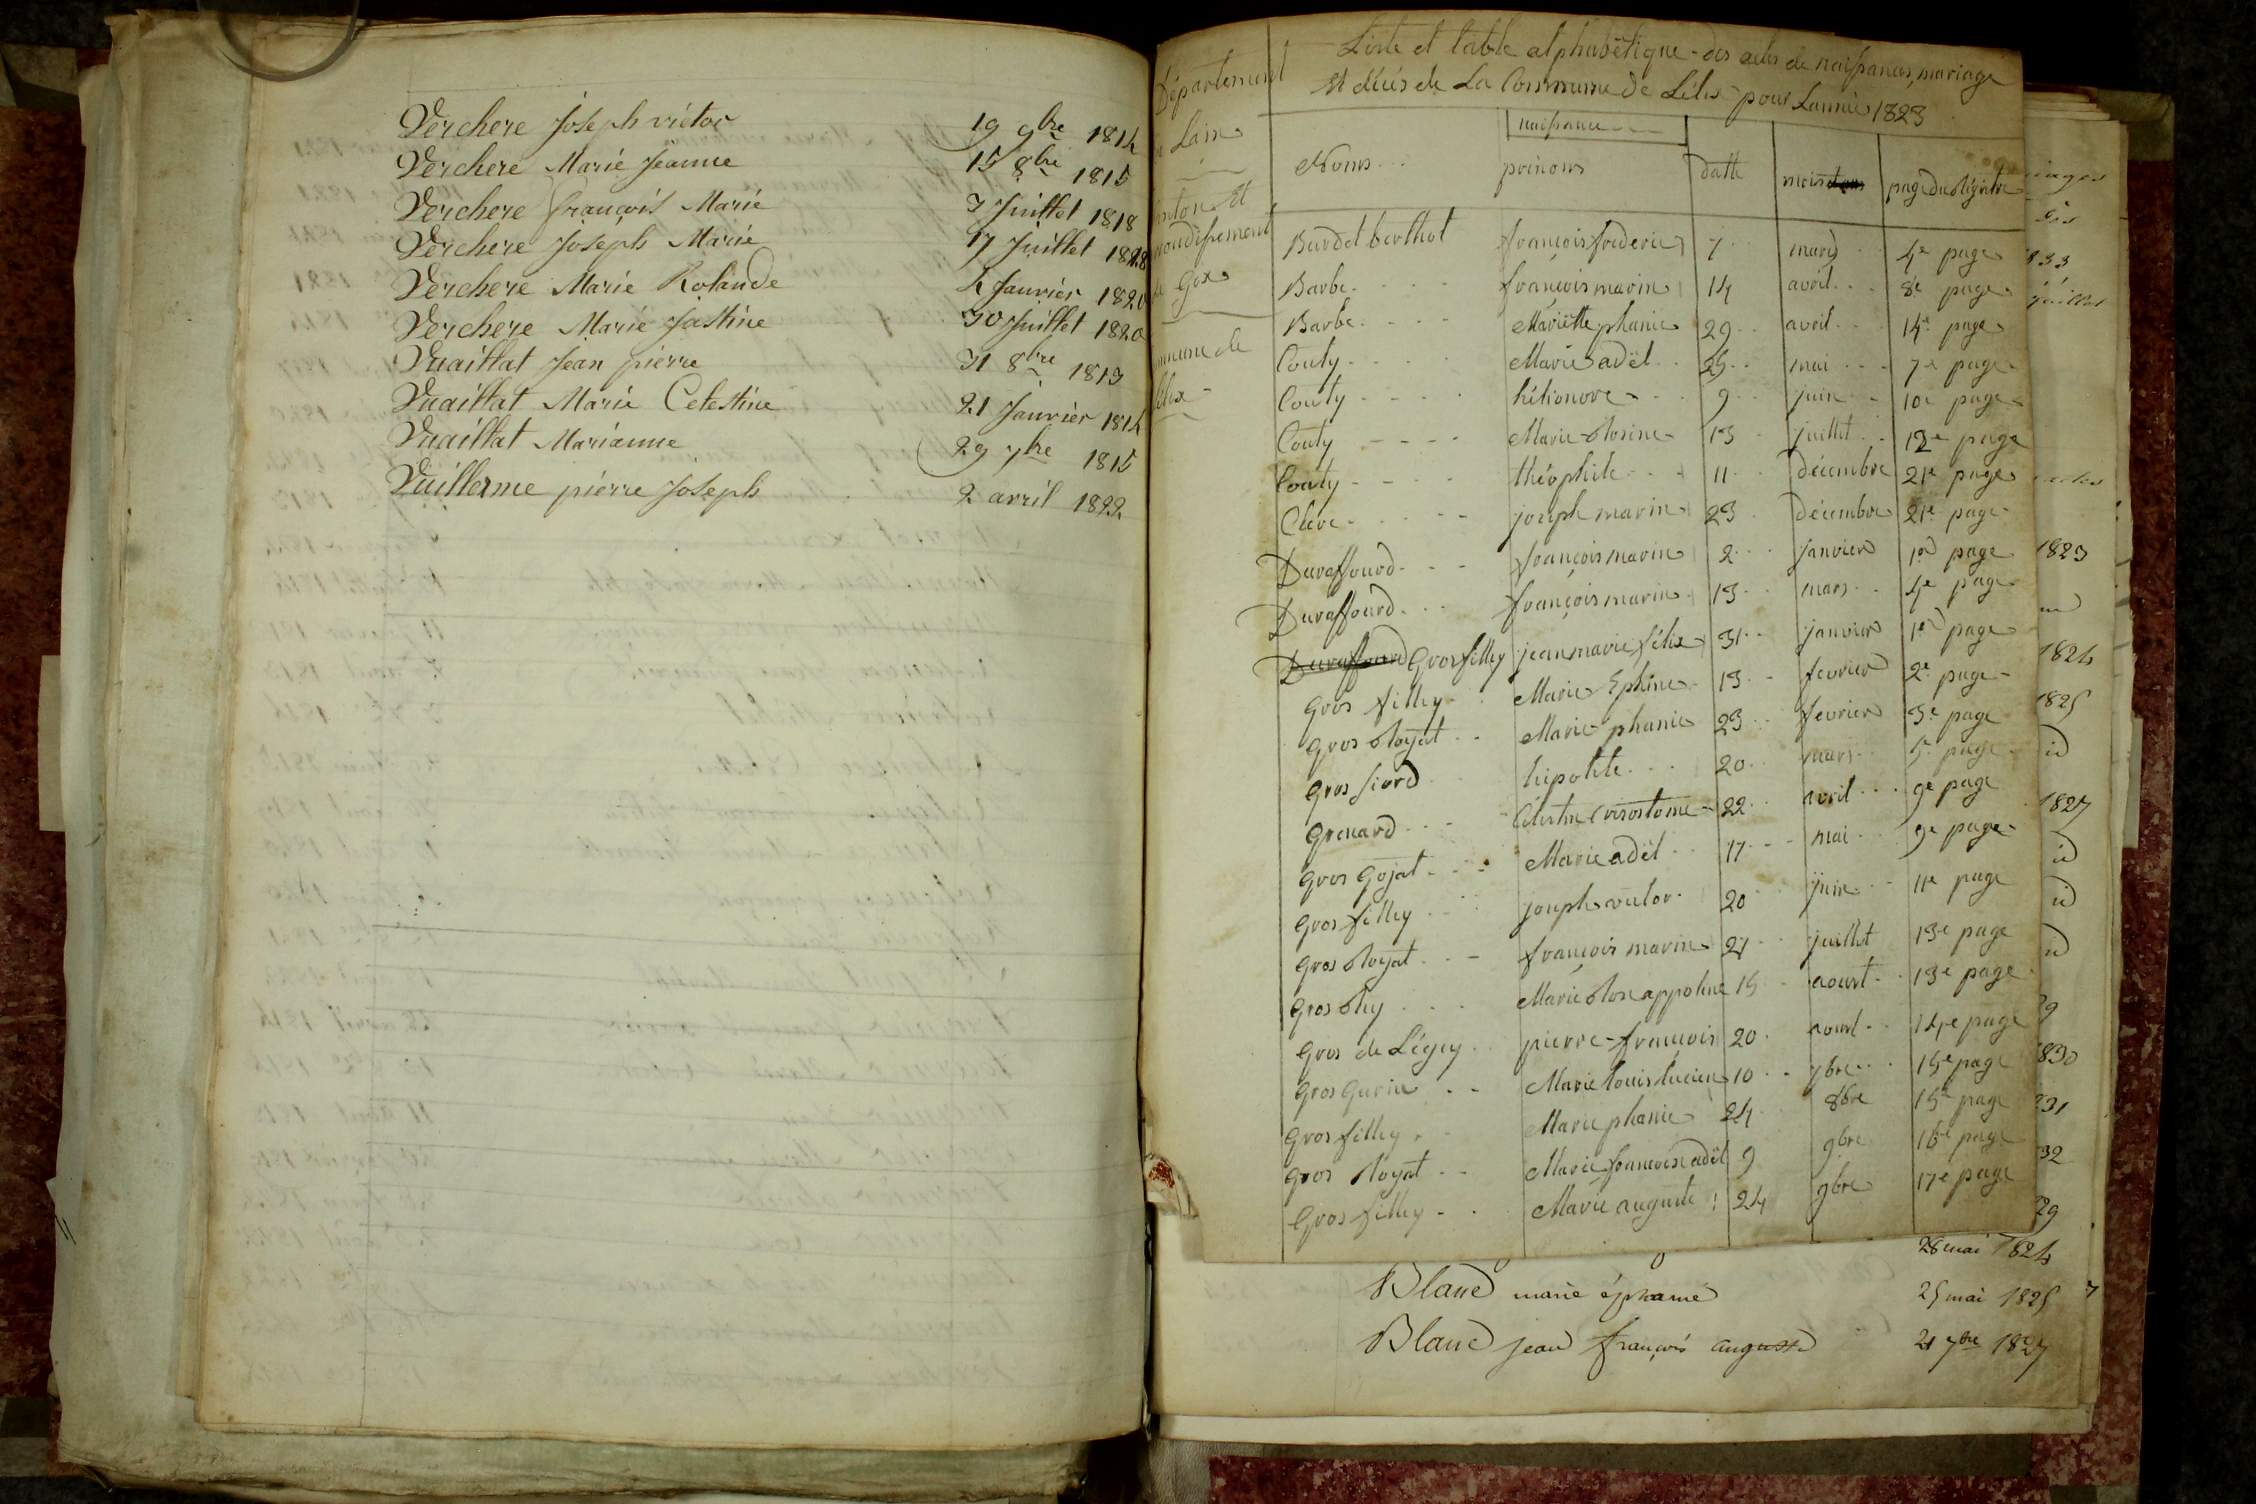 Verchere Joseph victor 19 9bre 1814
Verchere Marie Jeanne 15 8bre 1815
Verchere françois Marie 3 Juillet 1818
Verchere Joseph Marie 17 Juillet 1828
Verchere Marie Rolande 4 Janvier 1820
Verchere Marie Jastine 30 Juillet 1820
Vuaillat Jean pierre 31 8bre 1813
Vuaillat Marie Celestine 21 Janvier 1814
Vuaillat Marianne 29 7bre 1815
Vuillerme pierre Joseph 2 avril 1822
Liste et table alphabétique des actes de naissances, mariage
Et décés de La Commune de Lélex pour Lannée 1823
Département
Lain
Et
de Gex
de
naissance
Noms prénoms datte mois page du Régistre
Bardet berthet françois frederic 7 mars 4e page
Barbe françois marin 14 avril 8e page
Barbe Mariette phanie 29 avril 14e page
Couty Marie adël 25 mai 7e page
Couty héléonore 9 juin 10e page
Couty Marie Rosine 13 juillet 12e page
Couty théophile 11 décembre 21e page
Clerc joseph marin 23 décembre 21e page
Duraffourd françois marin 2 janvier 1er page
Duraffourd françois marin 13 mars 4e page
Duraffourd Grosfilley jean marie félix 31 janvier 1er page
Gros filley Marie Ephine 13 fevrier 2e page
Gros Royat Marie phanie 23 fevrier 3e page
Gros fiord hipolite 20 mars 5e page
Grenard Célestin Crisostome 22 avril 9e page
Gros Gojat Marie adël 17 mai 9e page
Gros filley joseph victor 20 juin 11e page
Gros Royat françois marin 27 juillet 13e page
Gros Rey Marie Rose appoline 15 aoust 13e page
Gros de Légey pierre françois 20 aoust 14e page
Gros Gurin Marie louis lucien 10 7bre 15e page
Gros filley Marie phanie 24 8bre 15e page
Gros Royat Marie françoise adël 9 9bre 16e page
Gros filley Marie auguste 24 9bre 17e page
juillet
1823
1824
1825
id
1827
id
id
id
28 mai 1824
Blanc marie éphanie 25 mai 1825
Blanc jean françois auguste 21 7bre 1827